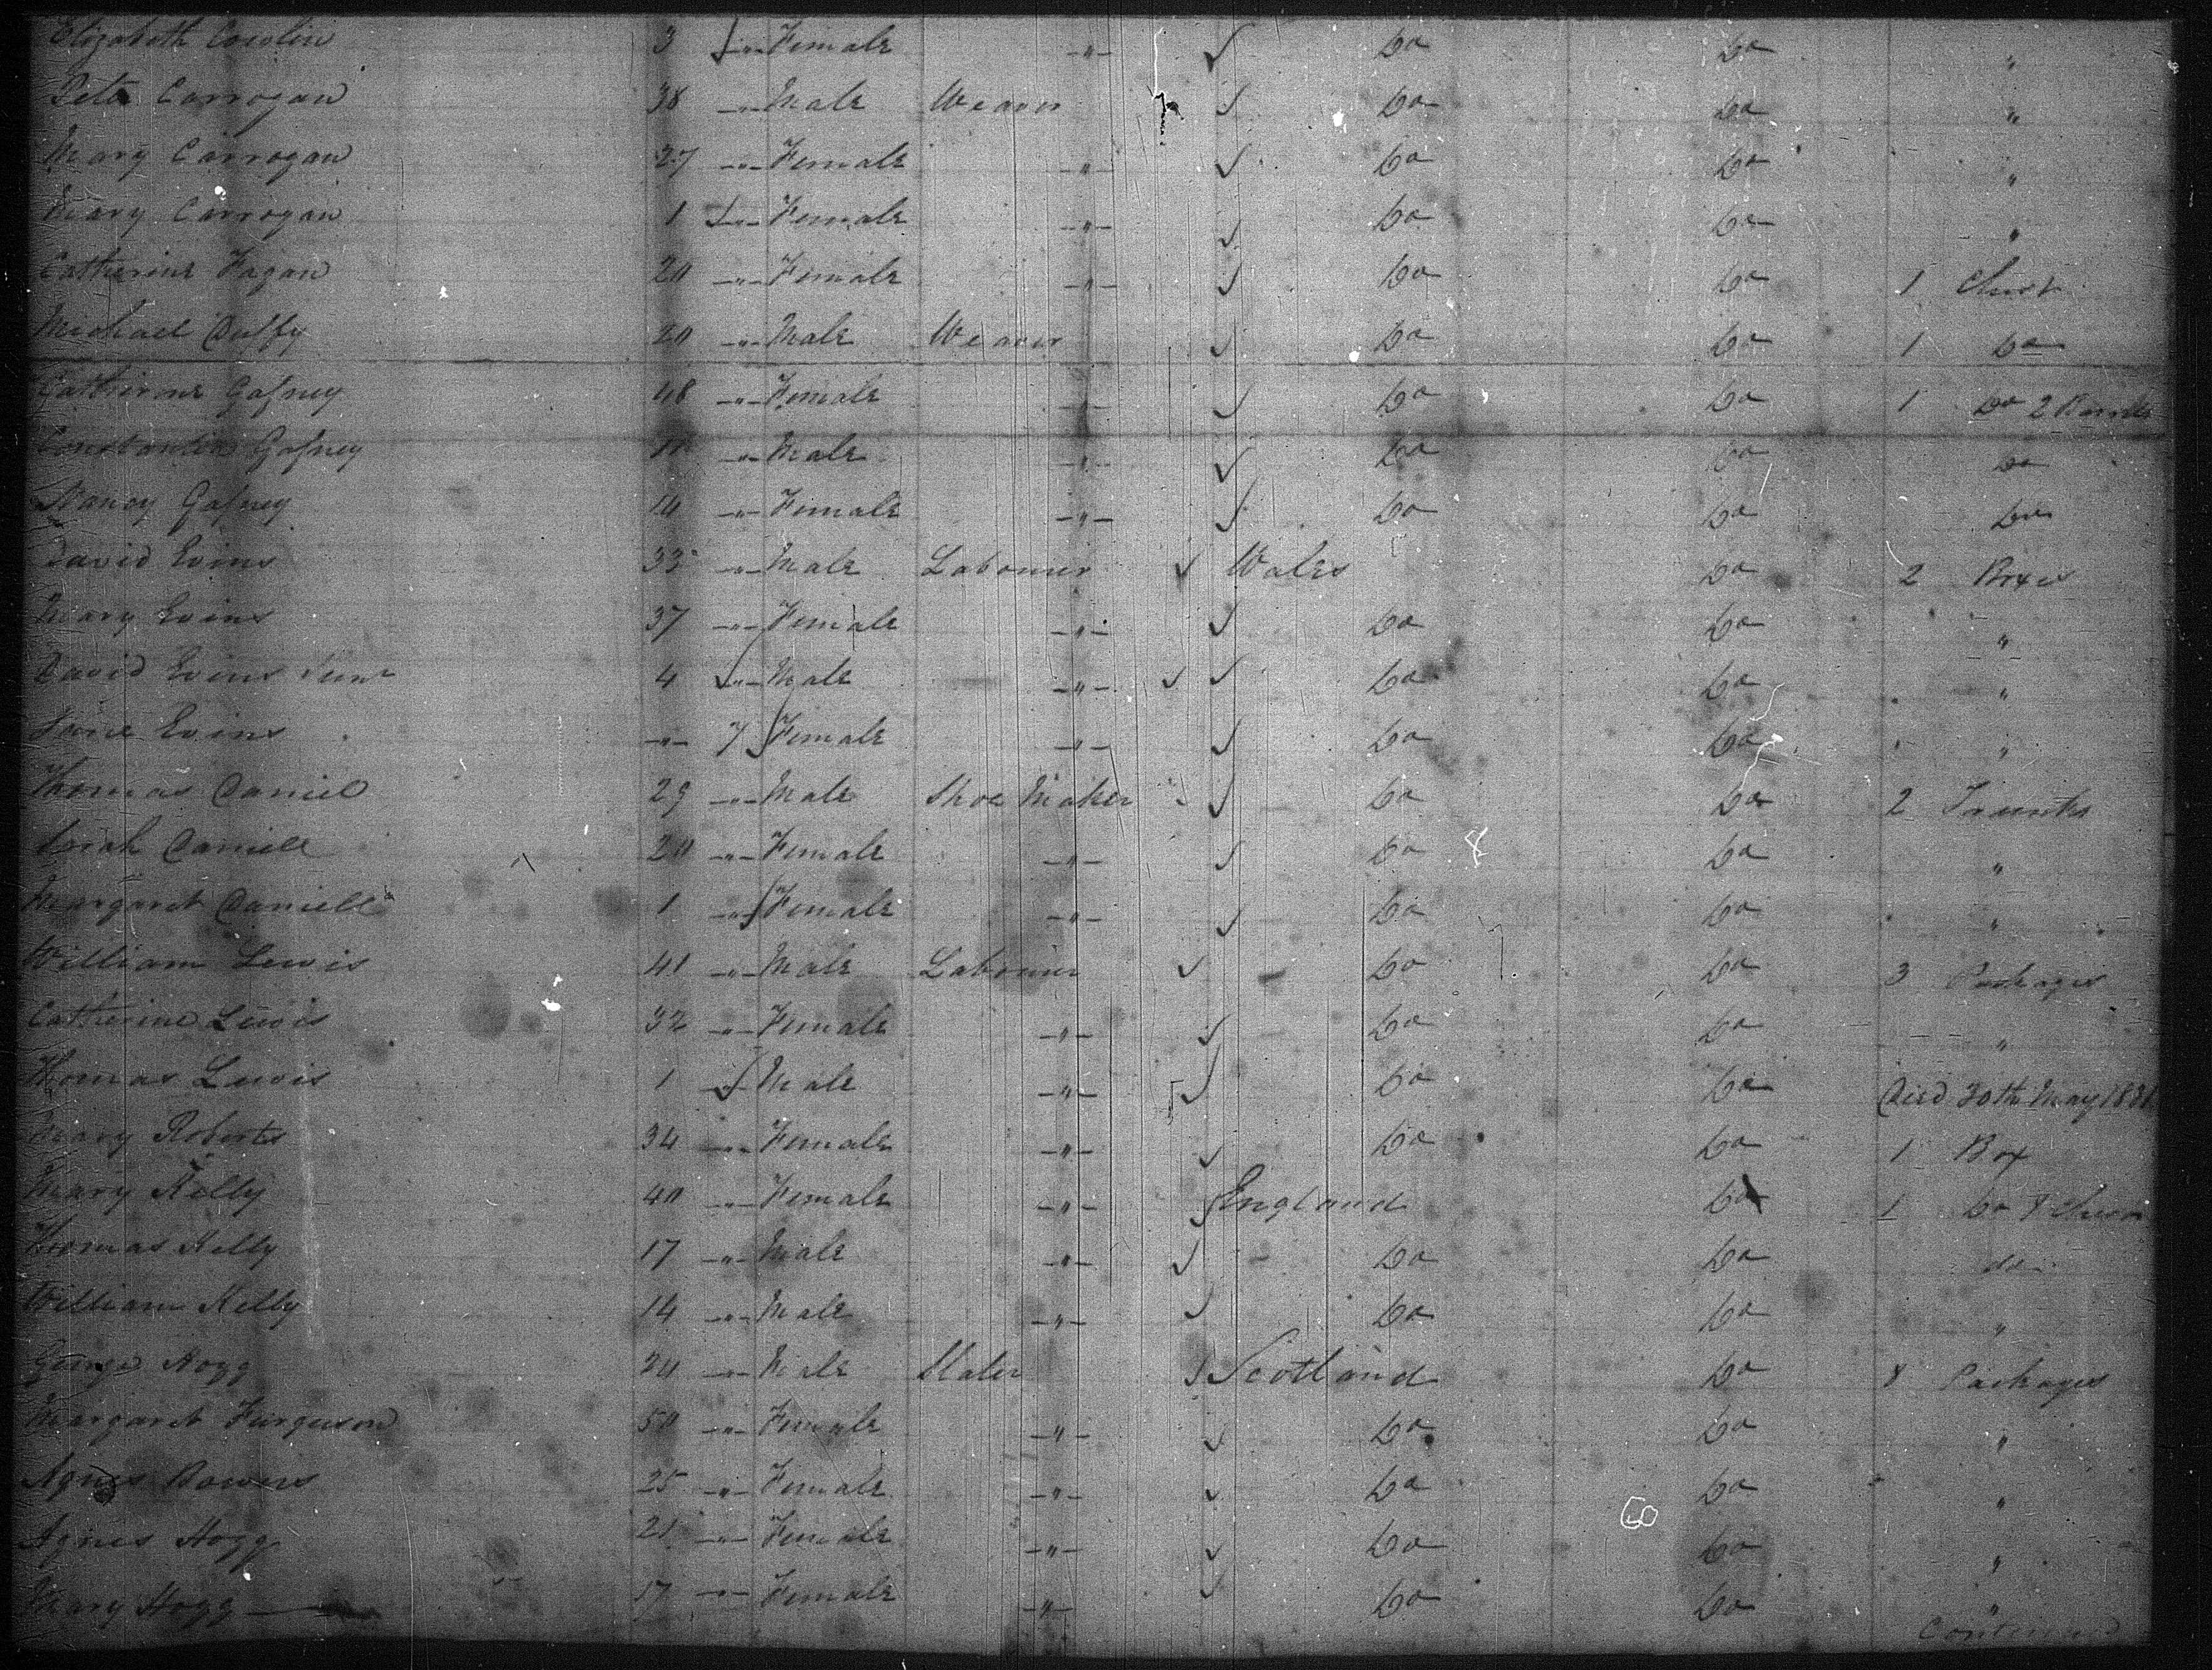 Elizabeth 3 -"- Female -"- Do Do "
Peter Carrogan 38 -"- Male Weaver Do Do "
Mary Carrogan 27 -"- Female -"- Do Do "
Mary Carrogan 1 -"- Female -"- Do Do "
Catherine Fagan 20 -"- Female -"- Do Do 1 Chest
Michael Duffy 20 -"- Male Weaver Do Do 1 Do
Catherine Gafney 48 -"- Female -"- Do Do 1 Do 2
Constantine Gafney -"- Male -"- Do Do Do
Nancy Gafney 14 -"- Female -"- Do Do Do
David Evins 33 -"- Male Labourer Wales Do 2 Boxes
Mary Evins 37 -"- Female -"- Do Do "
David Evins Junr 4 -"- Male -"- Do Do "
Jane Evins -"- 7 Female -"- Do Do "
Thomas Daniel 29 -"- Male Shoe Maker Do Do 2 Traunks
Sarah Daniell 20 -"- Female -"- Do Do "
Margaret Daniell 1 -"- Female -"- Do Do "
William Lewis 41 -"- Male Labourer Do Do 3 Packages
Catherine Lewis 32 -"- Female -"- Do Do "
Thomas Lewis 1 -"- Male -"- Do Do Died 20th May
Mary Roberts 34 -"- Female -"- Do Do 1 Box
Mary Kelly 40 -"- Female -"- England Do 1 Do &
Thomas Kelly 17 -"- Male -"- Do Do do
William Kelly 14 -"- Male -"- Do Do "
George Hogg 24 -"- Male Slater Scotland Do 8 Packages
Margaret Furguson 50 -"- Female -"- Do Do "
Agnes Bowers 25 -"- Female -"- Do Do "
Agnes Hogg 21 -"- Female -"- Do Do "
Mary Hogg 17 -"- Female -"- Do Do "
Continued